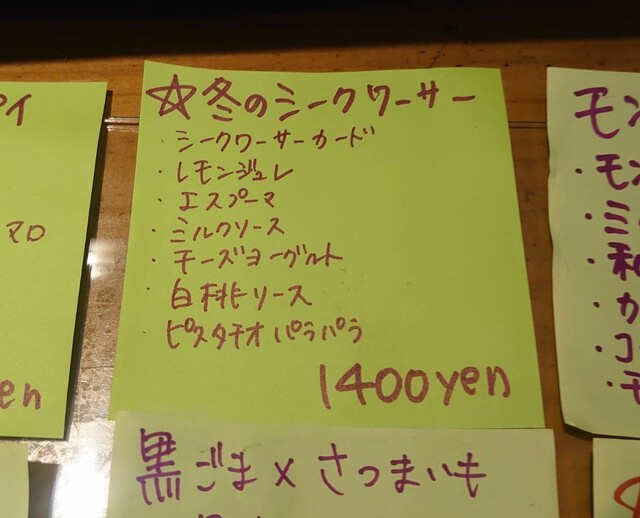 パイ
マロ
en
☆冬のシークワーサー
・シークワーサーカード
・レモンジュレ
・エスプーマ
・ミルクソース
・チーズヨーグルト
・白桃ソース
・ピスタチオパラパラ
1400yen
黒ごま×さつまいも
モン
・モン
・ミ
・和
・カ
・コ
・モ